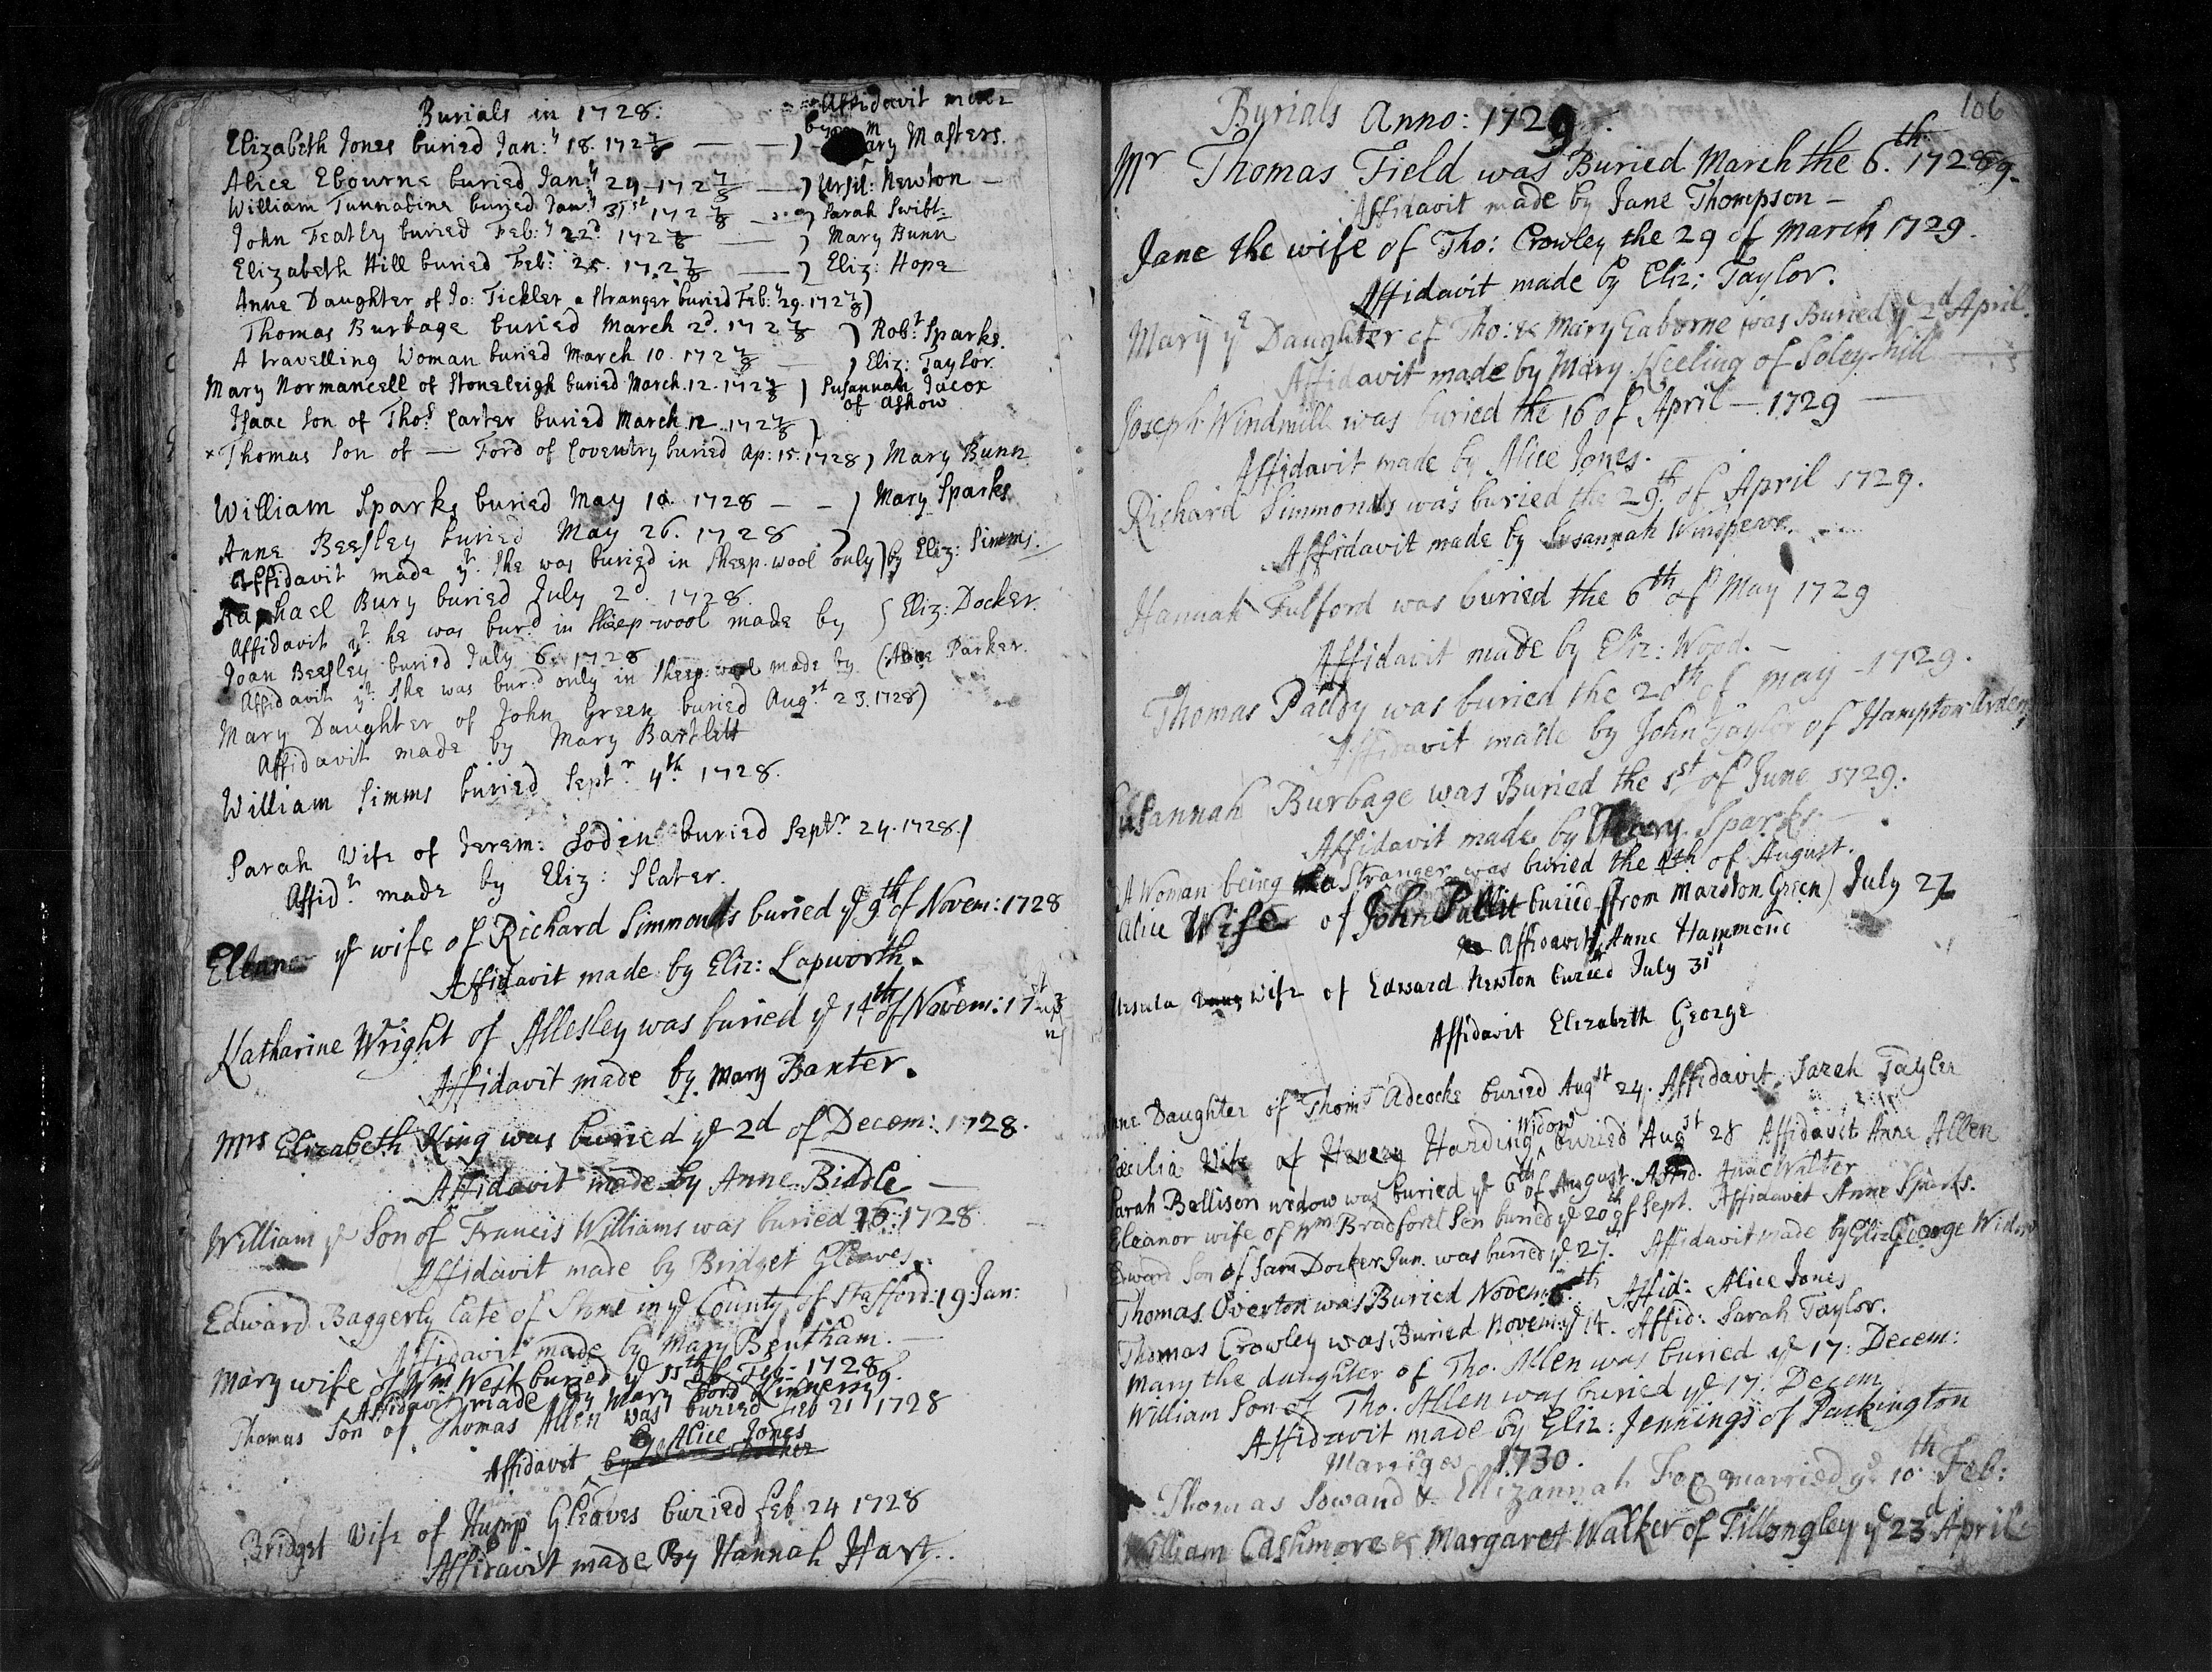 Burials in 1728:
Affidavit made
Elizabeth Jones buried Jan:y 18. 172 7/8 — — ) by Mary Masters.
Alice Ebourne buried Jan:y 24 — 172 7/8 — ) Ursil: Newton —
William Tunnatine buried Jan:y 31st 172 7/8 — ) Sarah Swift
John Featly buried Feb:y 22d 172 7/8 — ) Mary Bunn
Elizabeth Hill buried Feb: 25. 172 7/8 — ) Eliz: Hope
Anne Daughter of Jo: Tickler a Stranger buried Feb:y 29. 172 7/8)
Thomas Burbage buried March 2d. 172 7/8 ) Robt Sparks.
A travelling Woman buried March 10. 172 7/8 — ) Eliz: Taylor.
Mary Normancell of Stoneleigh buried March. 12. 172 7/8 ) Susannah Jacox
of Ashow
Isaac Son of Thos Carter buried March 12. 172 7/8 )
x Thomas Son of — Ford of Coventry buried Ap: 15. 1728 ) Mary Bunn
William Sparks buried May 10. 1728 — — ) Mary Sparks
Anne Beesley buried May 26. 1728 )
Affidavit made yt. She was buried in Sheep-wool only ) by Eliz: Simms.
Raphael Bury buried July 2d. 1728.
Affidavit yt. he was burd in Sheep-wool made by ) Eliz: Docker.
Joan Beesley buried July 6. 1728
Affidavit yt. She was bur:d only in Sheep-wool made by ( Parker.
Mary Daughter of John Green buried Augst 23. 1728)
Affidavit made by Mary Bartlett
William Simms buried Septr 4th. 1728.
Sarah Wife of Jerem: Soden buried Septr. 24. 1728.)
Affid.t made by Eliz: Slater.
Elleanor ye wife of Richard Simmonds buried ye 9th of Novem: 1728
Affidavit made by Eliz: Lapworth.
Katharine Wright of Allesley was buried ye 14th of Novem: 17
Affidavit made by Mary Banter.
Mrs Elizabeth King was buried ye 2d of Decem: 1728.
Affidavit made by Anne Biddle —
William ye Son of Francis Williams was buried 1728
Affidavit made by Bridget Gleaves.
Edward Baggerly Late of Stone in ye County of Stafford: 19 Jan:
Affidavit made by Mary Bentham. —
Mary wife of Wm West buried ye 11th of Feb: 1728
Affidavit made by Mary Ford
Thomas Son of Thomas Allen was buried Feb 21 1728
Alice Jones
Affidavit by Docker
Bridget Wife of Hump Gleaves buried Feb 24 1728
Affidavit made By Hannah Hart.
106
Burials Anno: 1729.
Mr Thomas Field was Buried March the 6.th 1728/9.
Affidavit made by Jane Thompson —
Jane the wife of Tho: Crowley the 29 of March 1729.
Affidavit made by Eliz: Taylor.
Mary ye Daughter of Tho: & Mary Eaborne was Buried ye 2d April.
Affidavit made by Mary Keeling of Soley-hill
Joseph Windmill was buried the 16 of April — 1729 —
Affidavit made by Alice Jones.
Richard Simmonds was buried the 29.th of April 1729.
Affidavit made by Susannah Winspear.
Hannah Fulford was buried the 6th of May 1729
Affidavit made by Eliz: Wood. —
Thomas Paddy was buried the of May — 1729.
Affidavit made by John Taylor of Hampton Arden
Susannah Burbage was Buried the 1st of June 1729.
Affidavit made by Sparks. —
A Woman being a Stranger was buried the of August.
Alice Wife of John buried (from Marston Green) July 27
Affidavit Anne Hammond
Ursula Wife of Edward Newton buried July 31st
Affidavit Elizabeth George
Anne Daughter of Thoms Adcocke buried Augst 24. Affidavit Sarah Tayler
Widow
Cæcilia Wife of Henery Harding buried Augst 28 Affidavit Anne Allen
Sarah Bellison widow was buried ye 6th of August. Affid. Anne Walter
Eleanor wife of Wm Bradford Sen buried ye 20 of Sept. Affidavit Anne Sparks.
Edward Son of Sam Docker Jun. was buried ye 27. Affidavit made by Eliz George Widow
Thomas Overton was Buried Novem: 6th Affid: Alice Jones
Thomas Crowley was Buried Novem: ye 14. Affid: Sarah Taylor.
Mary the daughter of Tho. Allen was buried ye 17: Decem:
William Son of Tho. Allen was buried ye 17: Decem
Affidavit made by Eliz: Jennings of Packington
Marriges 1730.
Thomas Soward & Ellizannah Fox married ye 10th Feb:
William Cashmore & Margaret Walker of Fillongley ye 23d April